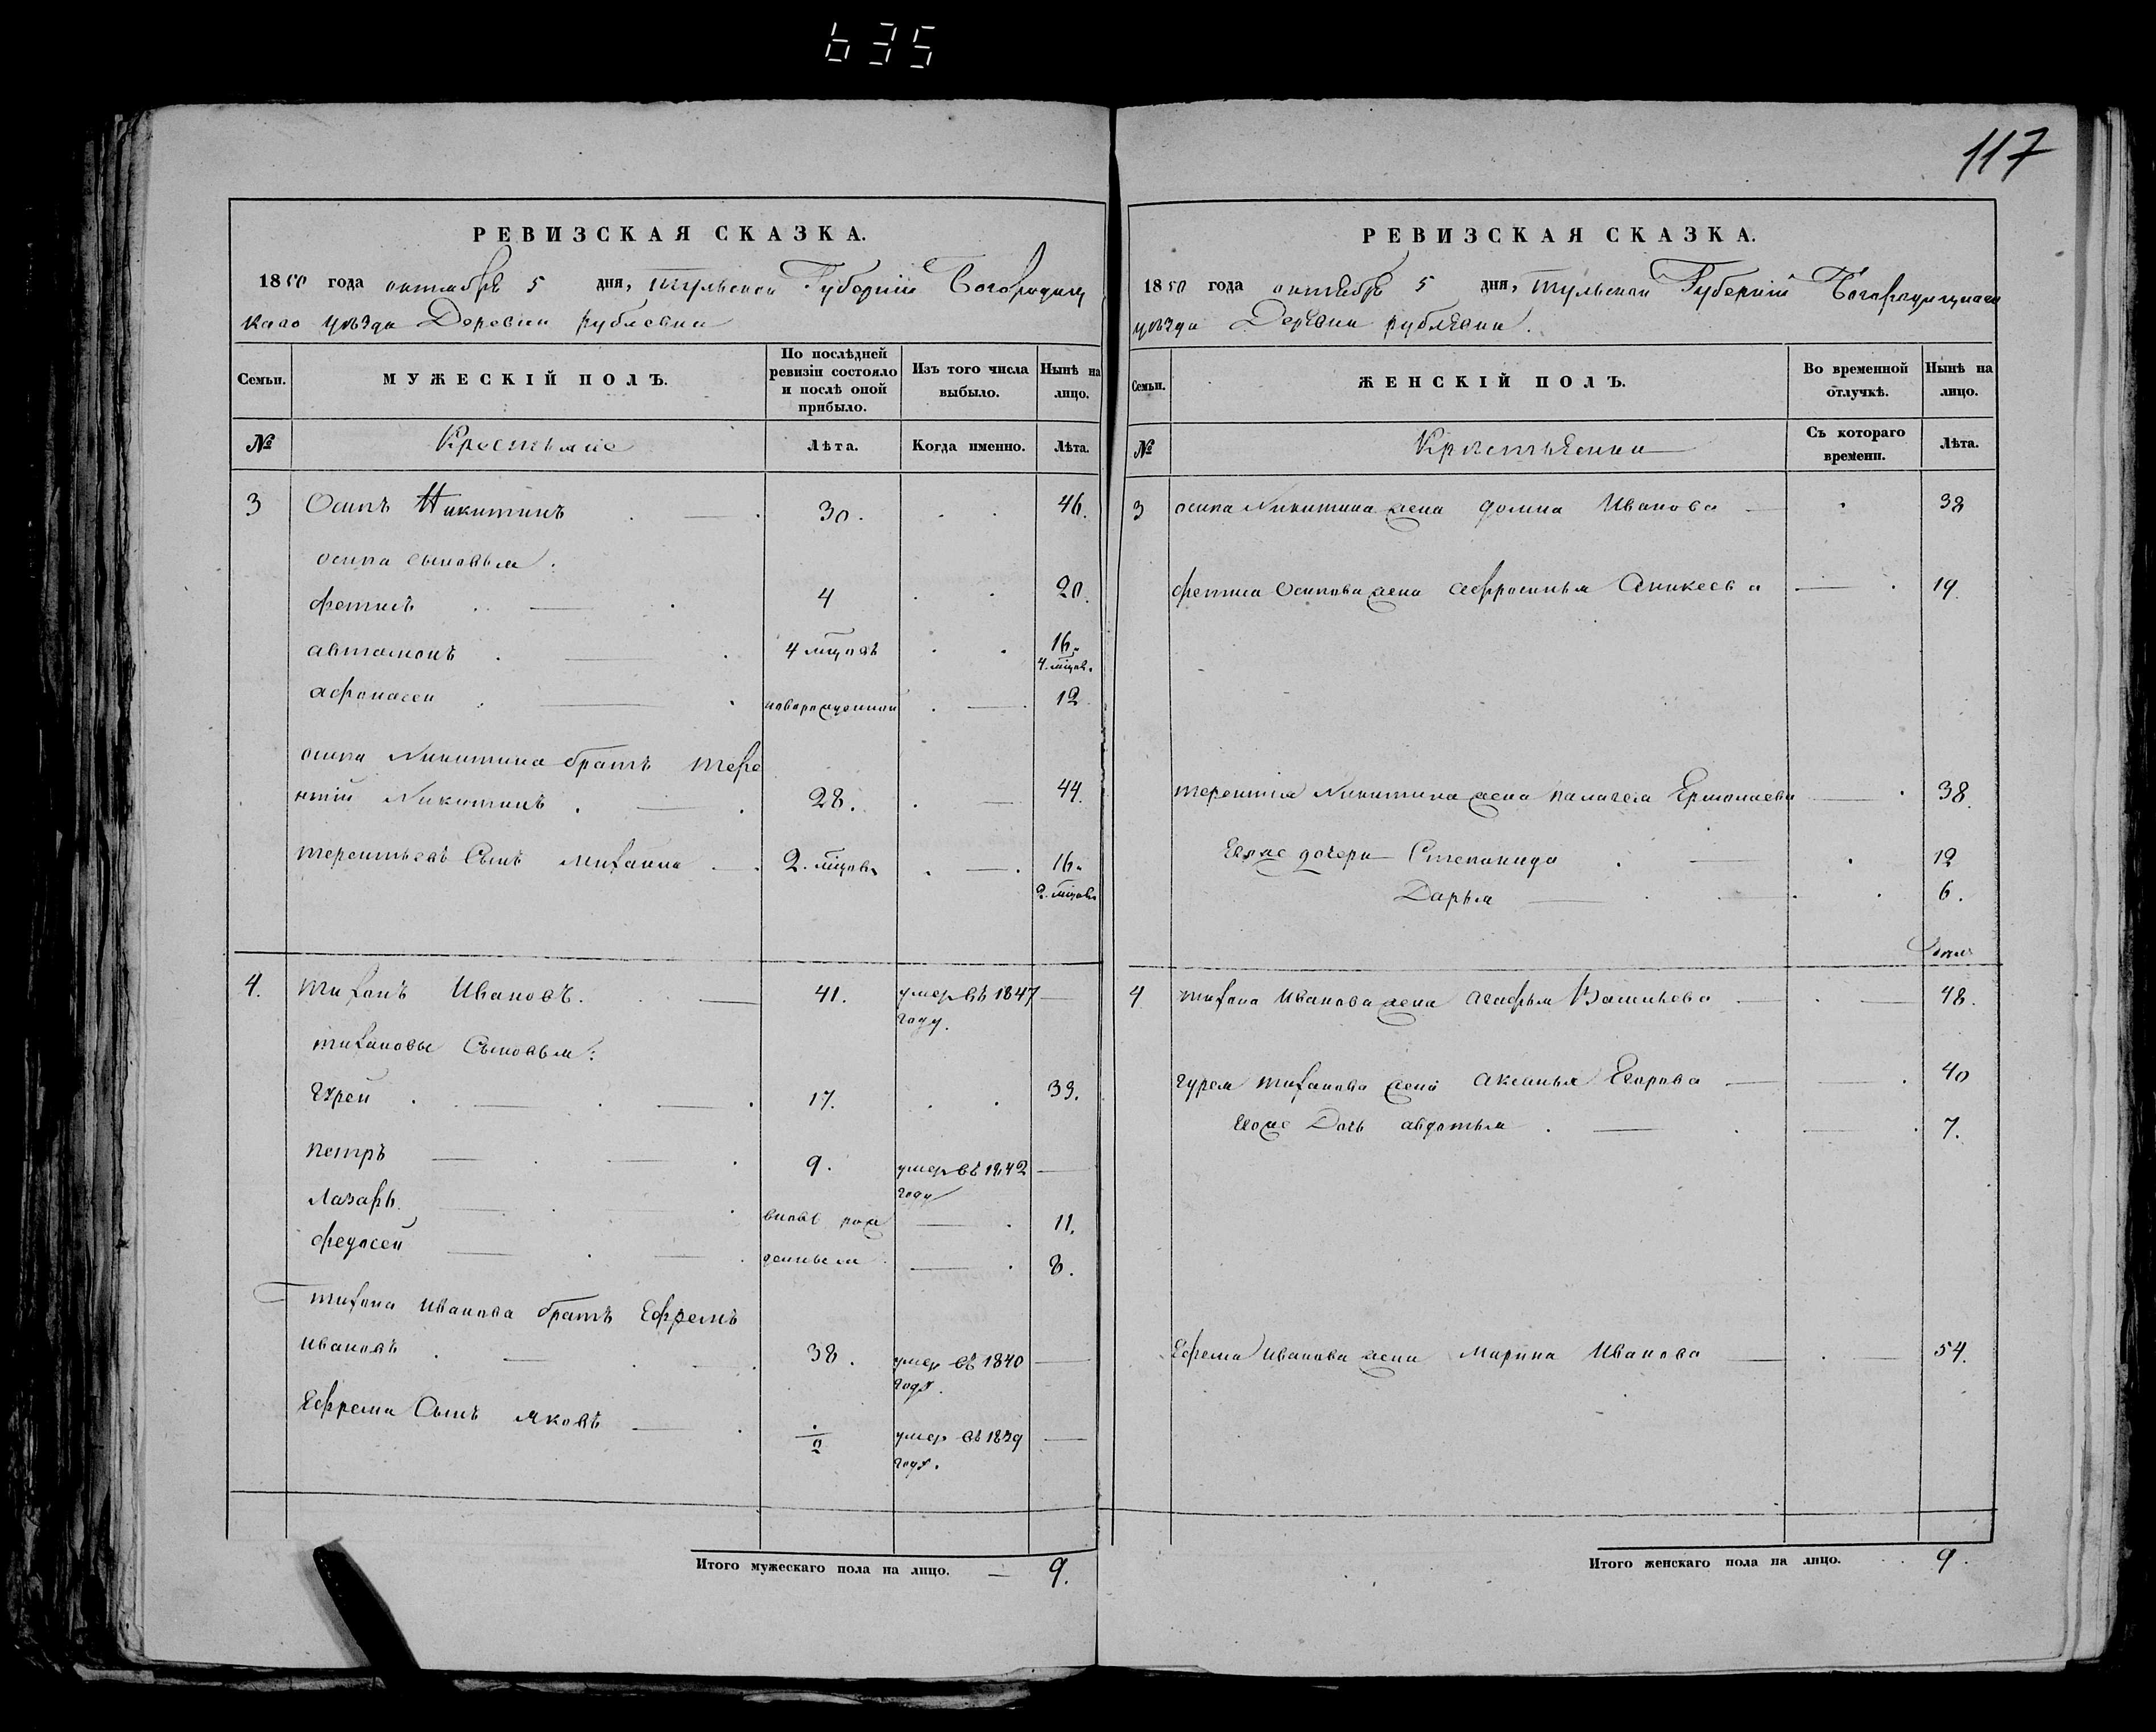 635
117
РЕВИЗСКАЯ СКАЗКА.
1850 года октября 5 дня, тульской Губерніи Богородиц
каго уѣзда Деревни рублевки
Семьи.
МУЖЕСКІЙ ПОЛЪ.
По послѣдней ревизіи состояло и послѣ оной прибыло.
Изъ того числа выбыло.
Нынѣ на лицо.
№
Крестьяне
Лѣта.
Когда именно.
Лѣта.
3 Осипъ Никитинъ 30. 46.
осипа сыновья:
фетисъ 4 20.
автомонъ 4 мцовъ 16.
4. мцов.
афонасеи новорожденнои 12
осипа Никитина братъ тере
нтіи Никитинъ 28. 44.
терентьевъ Сынъ михаила 2. мцовъ 16.
2. мцовъ
4. тихонъ Ивановъ. 41. умеръ въ 1847
году.
тихоновы Сыновья:
Гурей 17. 33.
петръ 9. умеръ въ 1842
году
Лазарь вновь рож 11.
федосей денныя 8.
тихона Иванова братъ Ефремъ
ивановъ 38. умер въ 1840
году.
Ефрема Сынъ яковъ ½ умер въ 1839
году.
Итого мужескаго пола на лицо. 9.
РЕВИЗСКАЯ СКАЗКА.
1850 года октября 5 дня, тульской Губерніи Богородицкаго
уѣзда Деревни рублевки.
Семьи.
ЖЕНСКІЙ ПОЛЪ.
Во временной отлучкѣ.
Нынѣ на лицо.
№
Крестьянки
Съ котораго времени.
Лѣта.
3 осипа Никитина жена домна Иванова 38
фетиса Осипова жена Афросинья Аникеева 19.
терентія Никитина жена палагея Ермолаева 38.
Егоже дочери Степанида 12
Дарья 6.
4 тихона Иванова жена Агафья Васильева 48.
гурея тихонова жена аксинья Егорова 40
Егоже Дочь авдотья 7.
Ефрема Иванова жена Марина Иванова 54.
Итого женскаго пола на лицо. 9.